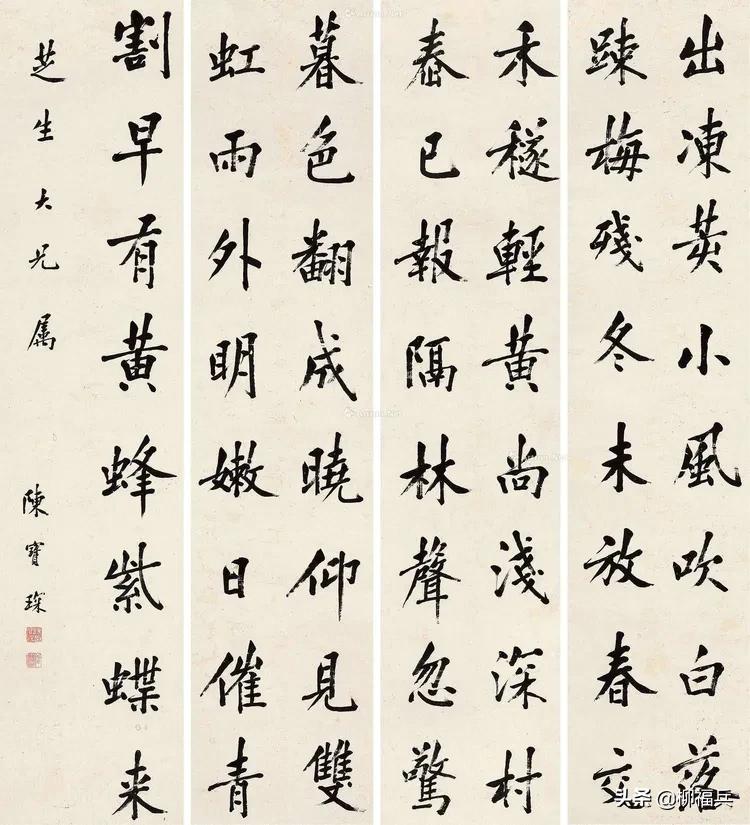 出凍荑小風吹白落
踈梅殘冬未放春交
禾穟輕黃尚淺深村
舂已報隔林聲忽驚
暮色翻成曉仰見雙
虹雨外明嫩日催青
割早有黃蜂紫蝶来
芝生大兄属
陳寶琛
头条 @柳福兵